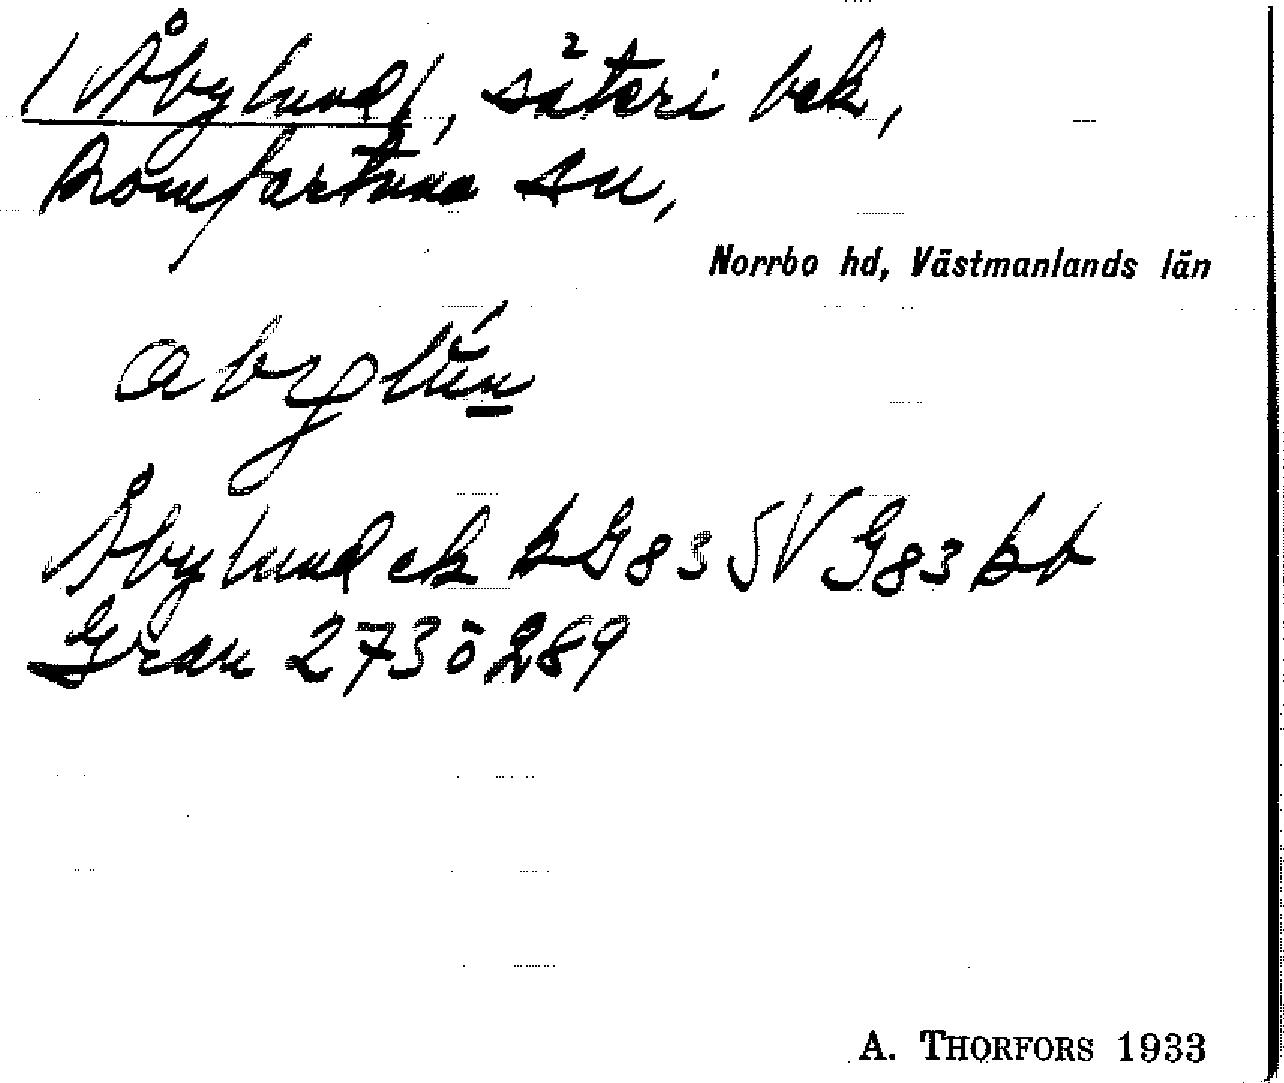 /Åbylund/, säteri bek,
Romfartuna sn,
Norrbo hd, Västmanlands län
Åbylund ek bG83 SV G83 bb
Gran 273 ö 289
A. THORFORS 1933